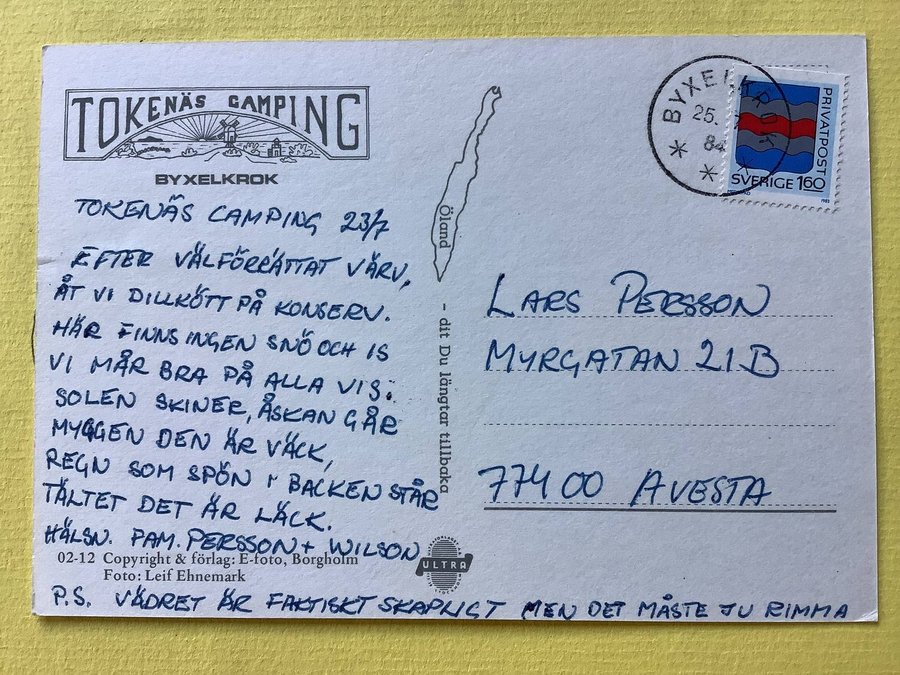 TOKENÄS CAMPING
BYXELKROK
TOKENÄS CAMPING 23/7
EFTER VÄLFÖRRÄTTAT VÄRV,
ÅT VI DILLKÖTT PÅ KONSERV.
HÄR FINNS INGEN SNÖ OCH IS
VI MÅR BRA PÅ ALLA VIS.
SOLEN SKINER, ÅSKAN GÅR
MYGGEN DEN ÄR VÄCK,
REGN SOM SPÖN I BACKEN STÅR
TÄLTET DET ÄR LÄCK.
HÄLSN. FAM. PERSSON + WILSON
02-12 Copyright & förlag: E-foto, Borgholm
Foto: Leif Ehnemark
P.S. VÄDRET ÄR FAKTISKT SKAPLIGT MEN DET MÅSTE JU RIMMA
Öland - dit Du längtar tillbaka
ULTRA
BYXELKROK
25.
84
PRIVATPOST
SVERIGE 160
LARS PERSSON
MYRGATAN 21 B
774 00 AVESTA